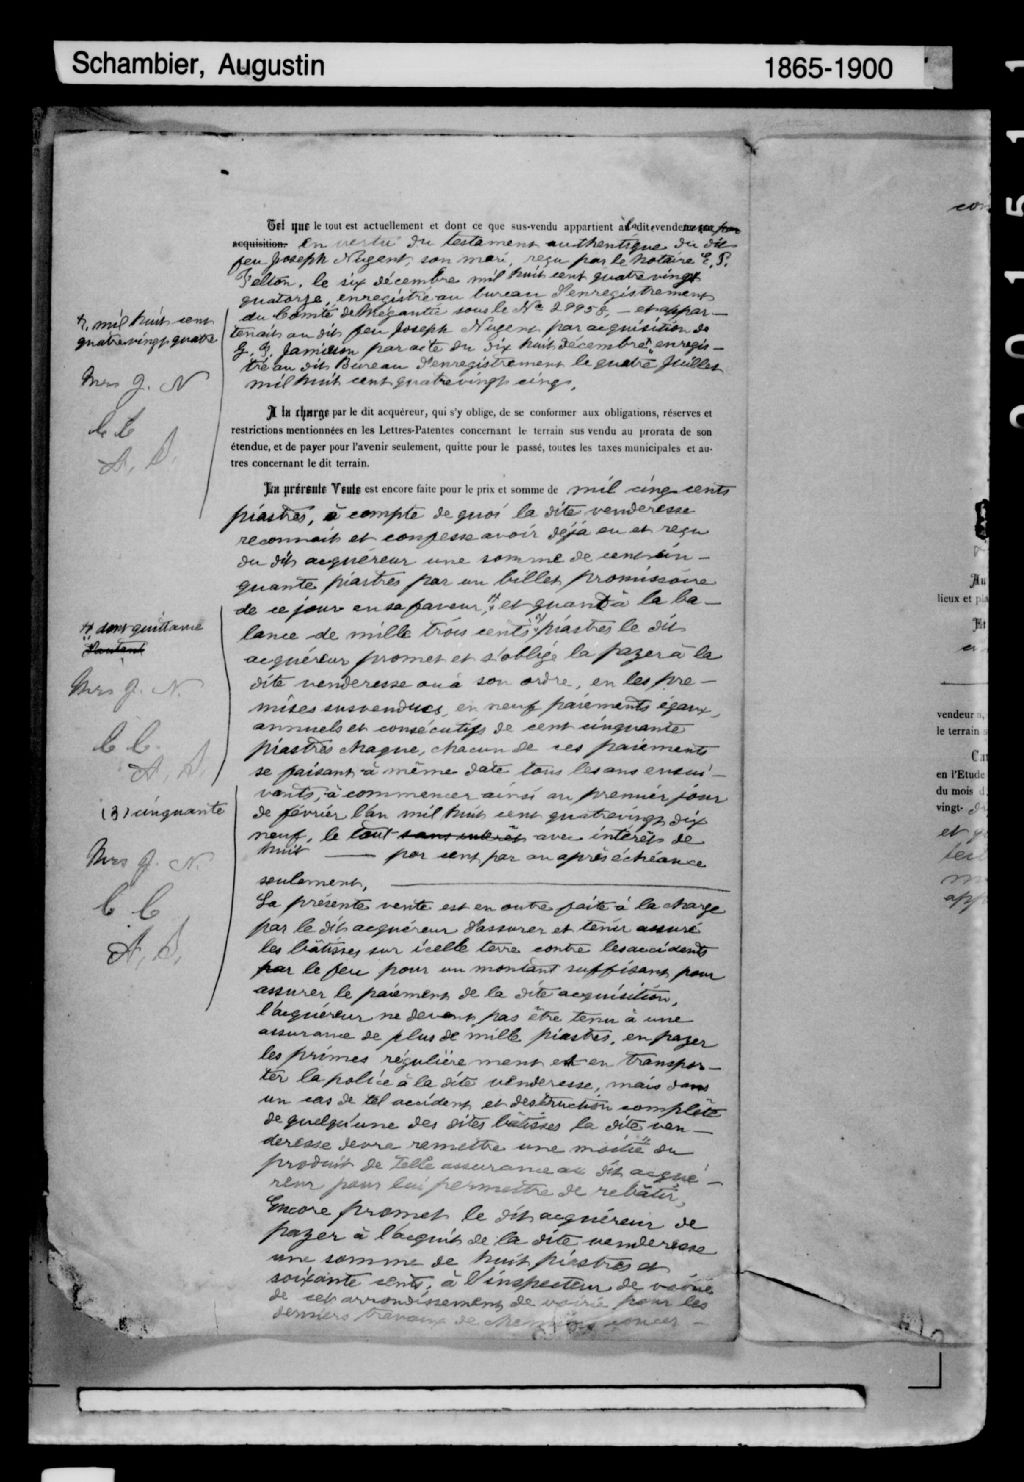 Schambier, Augustin
1865-1900
Tel que le tout est actuellement et dont ce que sus-vendu appartient à la dite venderesse par
acquisition. en vertu du testament authentique du dit
feu Joseph Nugent, son mari, reçu par le notaire E. P.
Felton, le six décembre mil huit cent quatre vingt
quatorze, enregistré au bureau d'enregistrement
du Comté de Mégantic sous le No 29958, – et appar–
tenait au dit feu Joseph Nugent par acquisition de
par acte du dix huit décembre enregis–
tré au dit Bureau d'enregistrement le quatre Juillet
mil huit cent quatre vingt cinq.
mil huit cent
quatre vingt quatre
Mrs J. N
C C
A. S.
A la charge par le dit acquéreur, qui s'y oblige, de se conformer aux obligations, réserves et
restrictions mentionnées en les Lettres-Patentes concernant le terrain sus vendu au prorata de son
étendue, et de payer pour l'avenir seulement, quitte pour le passé, toutes les taxes municipales et au-
tres concernant le dit terrain.
La présente Vente est encore faite pour le prix et somme de mil cinq cents
piastres, à compte de quoi la dite venderesse
reconnait et confesse avoir déjà eu et reçu
du dit acquéreur une somme de cent cin–
quante piastres par un billet promissoire
de ce jour en sa faveur, et quant à la ba–
lance de mille trois cents piastres le dit
acquéreur promet et s'oblige la payer à la
dite venderesse ou à son ordre, en les pre–
mises susvendues, en neuf paiements égaux,
annuels et consécutifs de cent cinquante
piastres chaque, chacun de ces paiements
se faisant à même date tous les ans ensui–
vants, à commencer ainsi au premier jour
de février l'an mil huit cent quatrevingt dix
neuf, le tout sans intérêt avec intérêts de
huit — par cent par an après échéance
seulement.
dont quittance
Mrs J. N.
C C.
A. S.
(3) cinquante
Mrs J. N
C C
A. S.
La présente vente est en outre faite à la charge
par le dit acquéreur d'assurer et tenir assuré
les bâtisses sur icelle terre contre les accidents
par le feu pour un montant suffisant pour
assurer le paiement de la dite acquisition,
l'acquéreur ne devant pas être tenu à une
assurance de plus de mille piastres, en payer
les primes régulièrement et en transpor–
ter la police à la dite venderesse, mais dans
un cas de tel accident et destruction complète
de quelqu'une des dites bâtisses la dite ven–
deresse devra remettre une moitié du
produit de telle assurance au dit acqué–
reur pour lui permettre de rebâtir.
Encore promet le dit acquéreur de
payer à l'acquit de la dite venderesse
une somme de huit piastres et
soixante cents, à l'inspecteur de voirie
de cet arrondissement de voirie pour les
derniers travaux de chemins concer–
Au
lieux et pla
Et
vendeur
le terrain s
en l'Etude
du mois d
vingt-
et